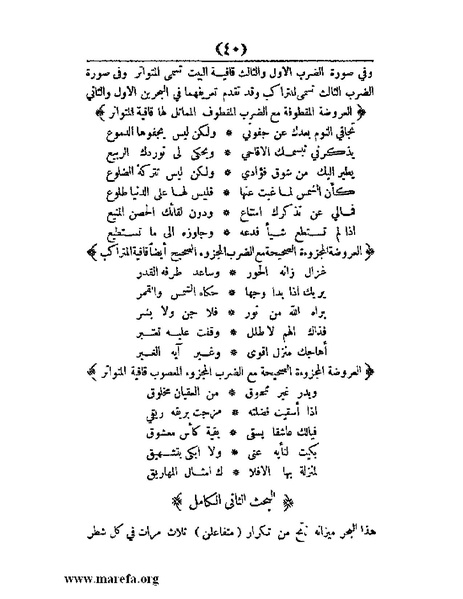 (٤٠)
وفي صورة الضرب الاول والثالث قافية البيت تسمى المتواتر وفى صورة
الضرب الثالث تسمى المتراكب وقد تقدم تعريفهما في البحرين الاول والثاني
﴿ العروضة المقطوفة مع الضرب المقطوف المماثل لها قافية المتواتر ﴾
تجافي النوم بعدك عن جفوني * ولكن ليس يجفوها الدموع
يذكرني تبسمك الاقاحي * ويحكى لى توردك الربيع
يطير اليك من شوق فؤادي * ولكن ليس تتركه الضلوع
كأن الشمس لما غبت عنها * فليس لها على الدنيا طلوع
فمالي عن تذكرك امتناع * ودون لقائك الحصن المنيع
اذا لم تستطع شيأ فدعه * وجاوزه الى ما تستطيع
﴿ العروضة المجزوءة الصحيحة مع الضرب المجزوء الصحيح أيضاً قافية المتراكب ﴾
غزال زانه الحور * وساعد طرفه القدر
يريك اذا بدا وجها * حكاه الشمس والقمر
براه الله من نور * فلا جن ولا بشر
فذاك الهم لا طلل * وقفت عليه تعتبر
أهاجك منزل اقوى * وغير آيه الغير
﴿ العروضة المجزوءة الصحيحة مع الضرب المجزوء المعصوب قافية المتواتر ﴾
وبدر غير ممحوق * من العقيان مخلوق
اذا أسقيت فضلته * مزجت بريقه ريقي
فيالك عاشقا يسقى * بقية كأس معشوق
بكيت لنأيه عنى * ولا ابكى بتشهيق
لمنزلة بها الافلا * ك امثال المهاريق
﴿ المبحث الثانى الكامل ﴾
هذا البحر ميزانه نتج من تكرار ( متفاعلن ) ثلاث مرات في كل شطر
www.marefa.org